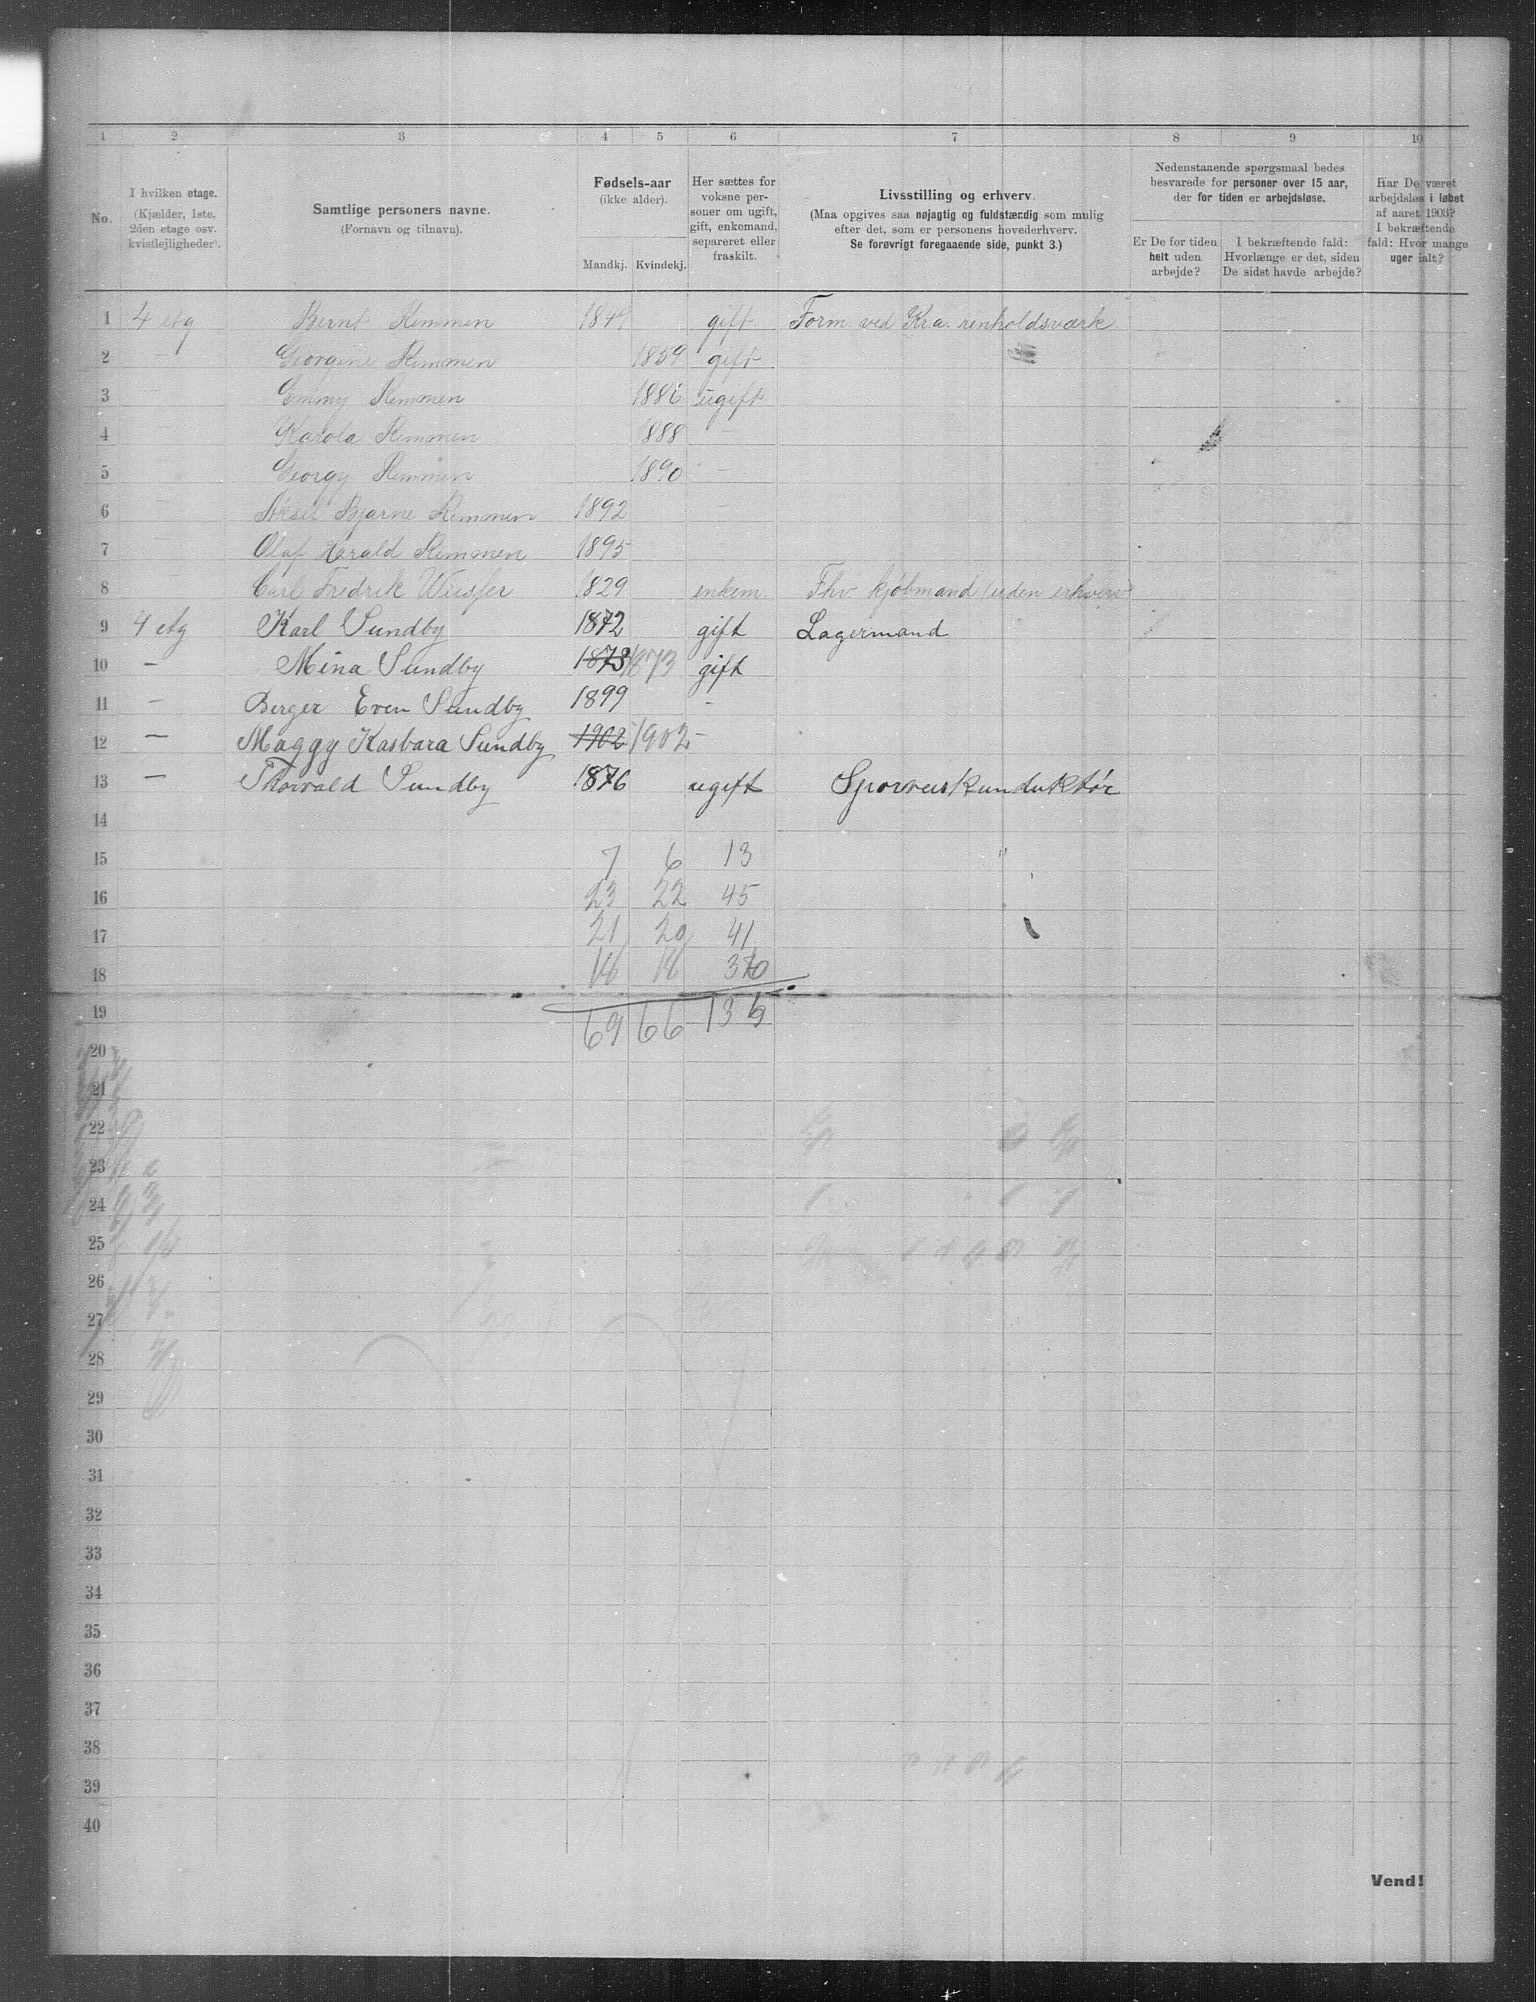 1 2 3 4 5 6 7 8 9 10
No.
I hvilken etage.
(Kjælder, 1ste,
2den etage osv.
kvistlejligheder).
Samtlige personers navne.
(Fornavn og tilnavn).
Fødsels-aar
(ikke alder).
Mandkj. Kvindekj.
Her sættes for
voksne per-
soner om ugift,
gift, enkemand,
separeret eller
fraskilt.
Livsstilling og erhverv.
(Maa opgives saa nøjagtig og fuldstærdig som mulig
efter det, som er personens hovederhverv.
Se forøvrigt foregaaende side, punkt 3.)
Nedenstaaende spørgsmaal bedes
besvarede for personer over 15 aar,
der for tiden er arbejdsløse.
Er De for tiden
helt uden
arbejde?
I bekræftende fald:
Hvorlænge er det, siden
De sidst havde arbejde?
Har De været
arbejdsløs i løbet
af aaret 1903?
I bekræftende
fald: Hvor mange
uger ialt?
1 4 etg Bernt Remmen 1849 gift Form. ved Kra. renholdsværk
2 — Georgine Remmen 1859 gift
3 — Emmy Remmen 1886 ugift
4 — Karola Remmen 1888 —
5 — Georgy Remmen 1890 —
6 — Aksel Bjarne Remmen 1892 —
7 — Olaf Harald Remmen 1895
8 — Carl Fredrik 1829 enkem. Fhv. kjøbmand (uden erhverv
9 4 etg Karl Sundby 1872 gift Lagermand
10 — Mina Sundby 1873 1873 gift
11 — Berger Even Sundby 1899 —
12 — Maggy Kasbara Sundby 1902 1902 —
13 — Thorvald Sundby 1876 ugift Sporveiskunduktør
14
15 7 6 13
16 23 22 45
17 21 20 41
18 18 18 36
19 69 66 135
20
21
22
23
24
25
26
27
28
29
30
31
32
33
34
35
36
37
38
39
40
Vend!